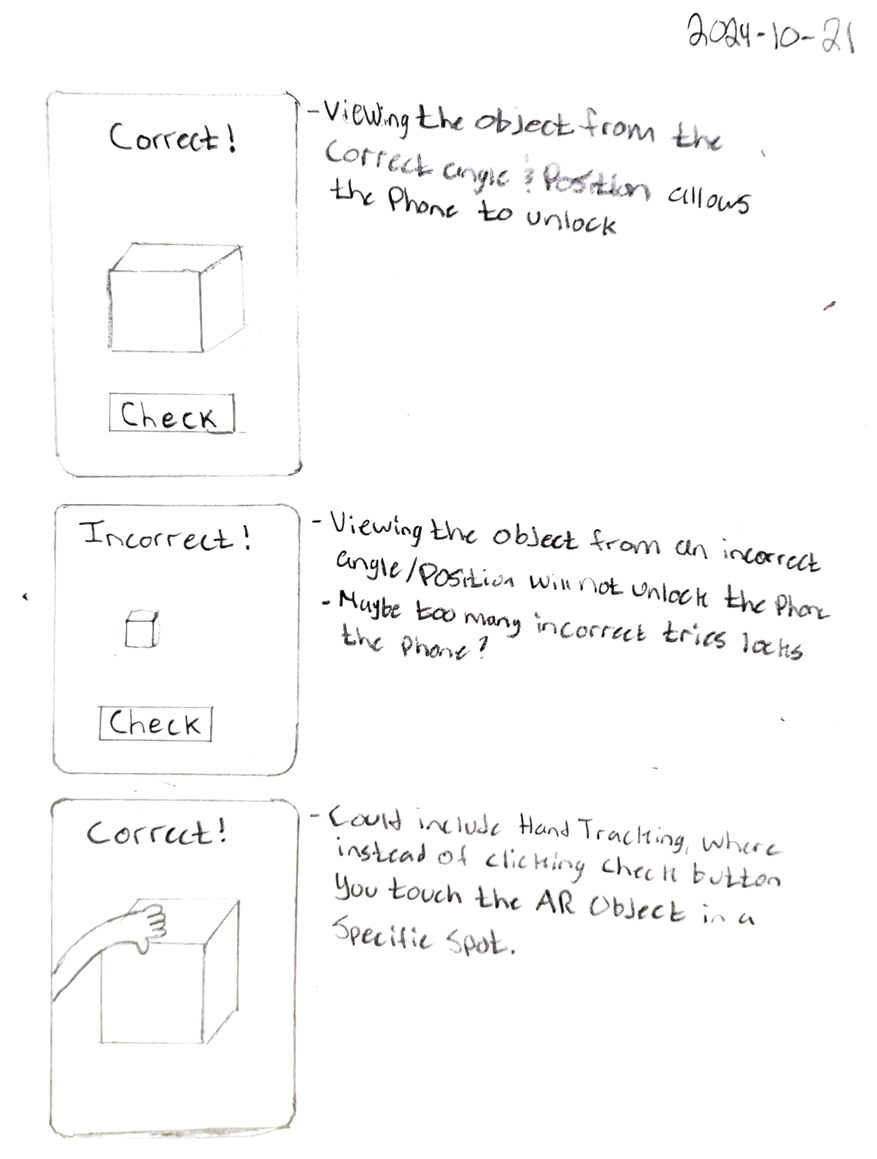 2024-10-21
Correct!
Check
-Viewing the object from the
Correct angle & Position allows
the Phone to unlock
Incorrect!
Check
- Viewing the object from an incorrect
angle/Position will not unlock the Phone
- Maybe too many incorrect tries locks
the phone?
Correct!
- Could include Hand Tracking, where
instead of clicking check button
You touch the AR Object in a
Specific Spot.